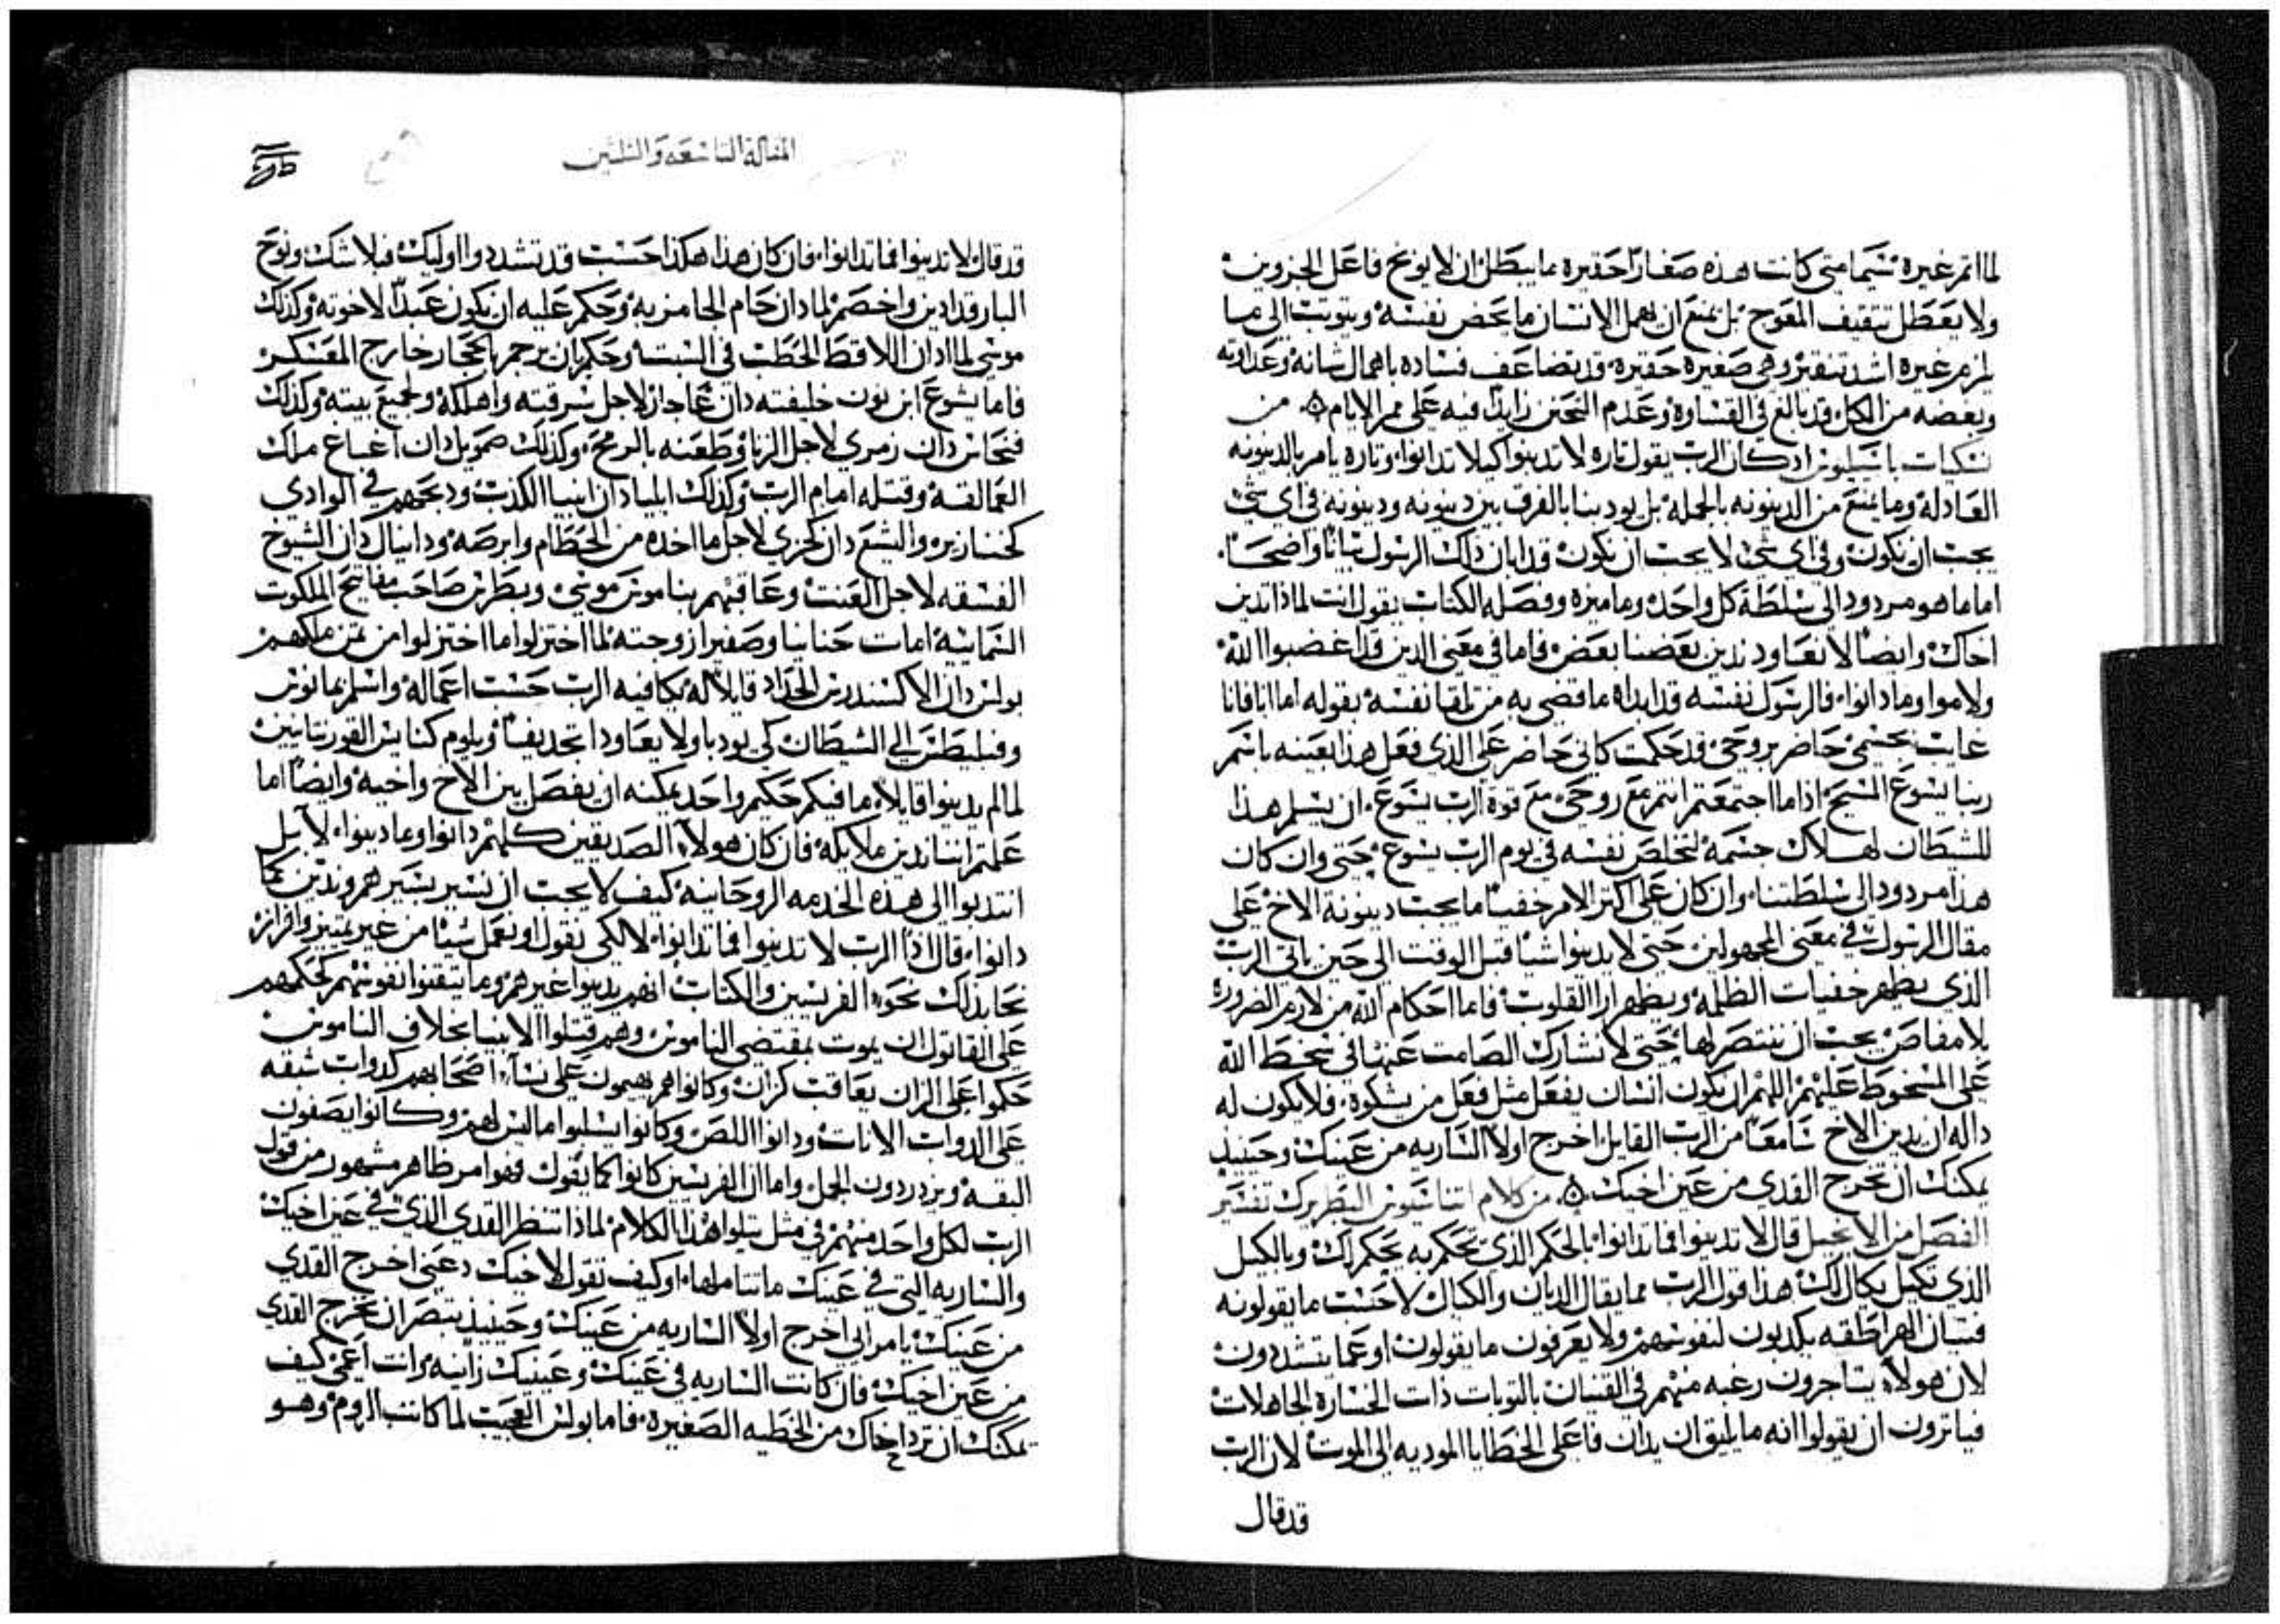 لما اثم غيره سيما متى كانت هذه صغارًا حقيره ما يبطل ان لا يوبخ فاعل الجزوين
ولا يعطل تثقيف المعوج بل يمنع ان يهمل الانسان ما يخص نفسه ويتوثب الى ما
يلزم غيره اشد تنقير وهي صغيره حقيره قد يضاعف فساده باهمال شانه وعداوته
وبعضه من الكل قد بالغ في القساوه وعدم التحنن زايدًا فيه على ممر الايام من
نسكيات باسيليوس اذ كان الرب يقول تاره لا تدينوا كيلا تدانوا وتاره يامر بالدينونه
العادله وما يمنع من الدينونه بالجمله بل يودبنا بالفرق بين دينونه ودينونه في اي شيٍ
يجب ان يكون وفي اي شيٍ لا يجب ان يكون قد ابان ذلك الرسول بيانًا واضحًا
اما ما هو مردود الى سلطة كل واحد وما ميزه وفصله الكتاب يقول انت لماذا تدين
اخاك وايضًا لا نعاود ندين بعضنا بعض فاما في معنى الذين قد اغضبوا الله
ولاموا وما دانوا فالرسول نفسه قد ابداه ما قضى به من تلقا نفسه بقوله اما انا فانا
غايب بجسمي حاضر بروحي قد حكمت كاني حاضر على الذي فعل هذا بعينه باسم
ربنا يسوع المسيح اذا ما اجتمعتم انتم مع روحي مع قوة الرب يسوع ان يسلم هذا
للشيطان لهلاك جسمه لتخلص نفسه في يوم الرب يسوع حتى وان كان
هذا مردود الى سلطتنا وان كان على اكثر الامر خفيًا ما يجب دينونة الاخ على
مقال الرسول في معنى المجهولين حتى لا يدينوا شيا قبل الوقت الى حين ياتي الرب
الذي يظهر خفيات الظلمه ويظهر ارا القلوب فاما احكام الله من لازم الضروره
بلا مفاص يجب ان ننتصر لها حتى لا نشارك الصامت عنها في سخط الله
على المسخوط عليهم اللهم ان يكون انسان يفعل مثل فعل من يشكوه فلا يكون له
داله ان يدين الاخ سامعًا من الرب القايل اخرج اولًا الساريه من عينك وحينيذ
يمكنك ان تخرج القذى من عين اخيك من كلام اتناسيوس البطريرك تفسير
الفصل من الانجيل قال لا تدينوا فما تدانوا بالحكم الذي تحكم به يحكم لك وبالكيل
الذي تكيل يكال لك هذا قول الرب مما يقال الديان والكيال لا حسب ما يقولونه
فتيان الهراطقه يكذبون لنفوسهم ولا يعرفون ما يقولون او عما يتشددون
لان هولاء يتاجرون رغبه منهم في القنيان بالتوبات ذات الخساره الجاهلات
فياثرون ان يقولوا انه ما يليق ان يدان فاعلي الخطايا الموديه الى الموت لان الرب
قد قال
المقالة التاسعه والثلثين
قد قال لا تدينوا فما تدانوا فان كان هذا هكذا حسب قد تشددوا اوليك فبلا شك ونوح
البار قد ادين واخصم لما دان حام الحامزبه وحكم عليه ان يكون عبدًا لاخوته وكذلك
موسى لما ادان اللاقط الحطب في السبت وحكم بان يرجم بالحجار خارج المعسكر
فاما يشوع ابن نون خليفته دان عاجاز لاجل سرقته واهلكه ولجميع بيته وكذلك
فنحاس دان زمري لاجل الزنا وطعنه بالرمح وكذلك صمويل دان اغاغ ملك
العمالقه وقتله امام الرب وكذلك ايليا دان انبيا الكذب وذبحهم في الوادي
كخنازير واليشع دان كجزي لاجل ما اخذه من الحطام وابرصه ودانيال دان الشيوخ
الفسقه لاجل العنت وعاقبهم بناموس موسى وبطرس صاحب مفاتيح الملكوت
السمائيه امات حنانيا وصفيرا زوجته لما اختزلوا ما اختزلوا من ثمن ملكهم
بولس دان الاكسندرس الحداد قايلًا له يكافيه الرب حسب اعماله واسلم يمانوس
وفيليطس الى الشيطان كي يودبا ولا يعاودا تجديفًا ويلوم كنايس القورنتايين
لما لم يدينوا قايلًا ما فيكم حكيم واحد يمكنه ان يفصل بين الاخ واخيه وايضًا اما
علمتم اننا ندين ملايكه فان كان هولاء الصديقين كلهم دانوا وما دينوا لا بل
انتدبوا الى هذه الخدمه الروحانيه كيف لا يجب ان نسير بسيرهم وندين كما
دانوا قال اذًا الرب لا تدينوا فما تدانوا لا لكي نقول او نعمل شيًا من غير تمييز وافراز
نحا بذلك نحو الفريسين والكتاب انهم يدينوا غيرهم وما يثقفوا نفوسهم كحكمهم
على القاتول ان يموت بمقتضى الناموس وهم قتلوا الانبيا بخلاف الناموس
حكموا على الزان يعاقب كزان وكانوا هم يهيمون على نساء اصحابهم كدواب شبقه
على الدواب الاناث ودانوا اللص وكانوا يسلبوا ما ليس لهم وكانوا يصفون
البقه ويزدردون الجمل واما ان الفريسين كانوا كما يقول فهو امر ظاهر مشهور من قول
الرب لكل واحد منهم في مثل يتلوا هذا الكلام لماذا تنظر القذى الذي في عين اخيك
والساريه التي في عينك ما تتاملها او كيف تقول لاخيك دعني اخرج القذى
من عينك يا مرائي اخرج اولًا الساريه من عينك وحينيذ تبصر ان تخرج القذى
من عين اخيك فان كانت الساريه في عينك وعينيك زانيه وانت اعمى كيف
يمكنك ان ترد اخاك من الخطيه الصغيره فاما بولس العجيب لما كاتب الروم وهو